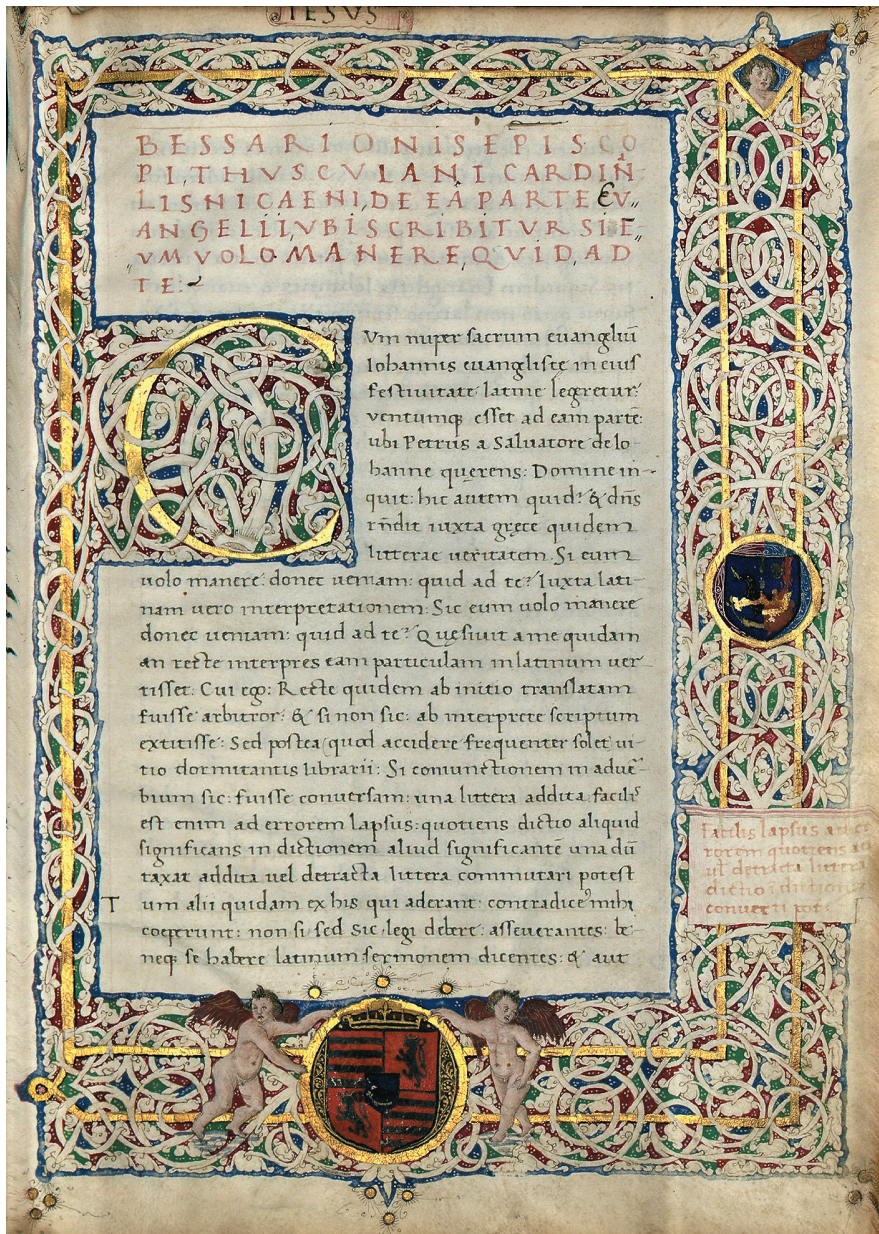 IESUS
BESSARIONIS EPISCO
PI, THVSCVLANI CARDIÑA
LIS NICAENI, DE EA PARTE EV,,
ANGELII, VBI SCRIBITVR SI E̅
,,VM VOLO MANERE, QVID, AD
TE:~
CVm nuper sacrum euangeliū
Iohannis euangliste in eius
festiuitate latine legretur:
ventumq; esset ad eam partē:
ubi Petrus a Saluatore de Io-
hanne quęrens: Domine in-
quit: hic autem quid? & dn̄s
rn̄dit iuxta gręce quidem
litterae ueritatem. Si eum
uolo manere donec ueniam: quid ad te? Iuxta lati-
nam uero interpretationem: Sic eum uolo manere
donec ueniam: quid ad te? Quęsiuit a me quidam
an recte interpres eam particulam in latinum uer-
tisset: Cui ego: Recte quidem ab initio translatam
fuisse arbitror: & si non sic: ab interprete scriptum
extitisse: Sed postea (quod accidere frequenter solet ui-
tio dormitantis librarii: Si coniunctionem in aduē-
bium sic: fuisse conuersam: una littera addita facilis
est enim ad errorem lapsus: quotiens dictio aliquid
significans in dictionem aliud significantē una dū
taxat addita uel detracta littera commutari potest
T um alii quidam ex his qui aderant: contradicere mihi
coeperunt: non si sed sic, legi debere: asseuerantes: be-
neq; se habere latinum sermonem dicentes: & aut
Facilis lapsus ad er
rorem quotiens ad
ul detracta littera
dictio i dictionē
conuerti pot: